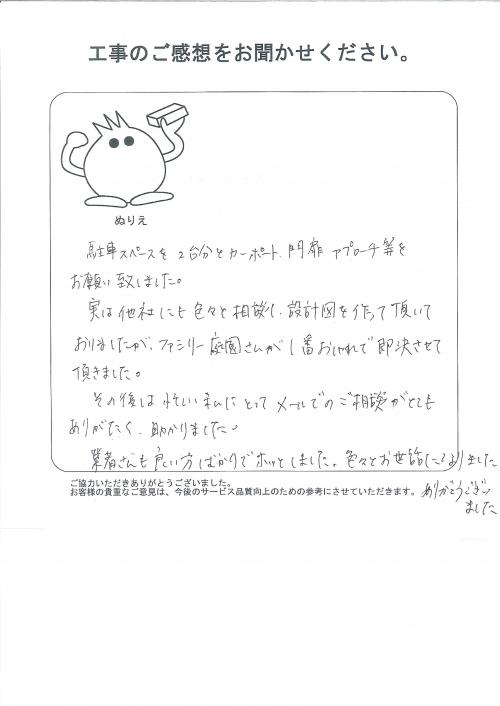 工事のご感想をお聞かせください。
ぬりえ
駐車スペースを2台分とカーポート、門扉 アプローチ等を
お願い致しました。
実は他社にも色々と相談し、設計図を作って頂いて
おりましたが、ファミリー庭園さんが1番おしゃれで即決させて
頂きました。
その後は忙しい私にとってメールでのご相談がとても
ありがたく、助かりました。
業者さんも良い方ばかりでホッとしました。色々とお世話になりました
ありがとうござい
ました
ご協力いただきありがとうございました。
お客様の貴重なご意見は、今後のサービス品質向上のための参考にさせていただきます。